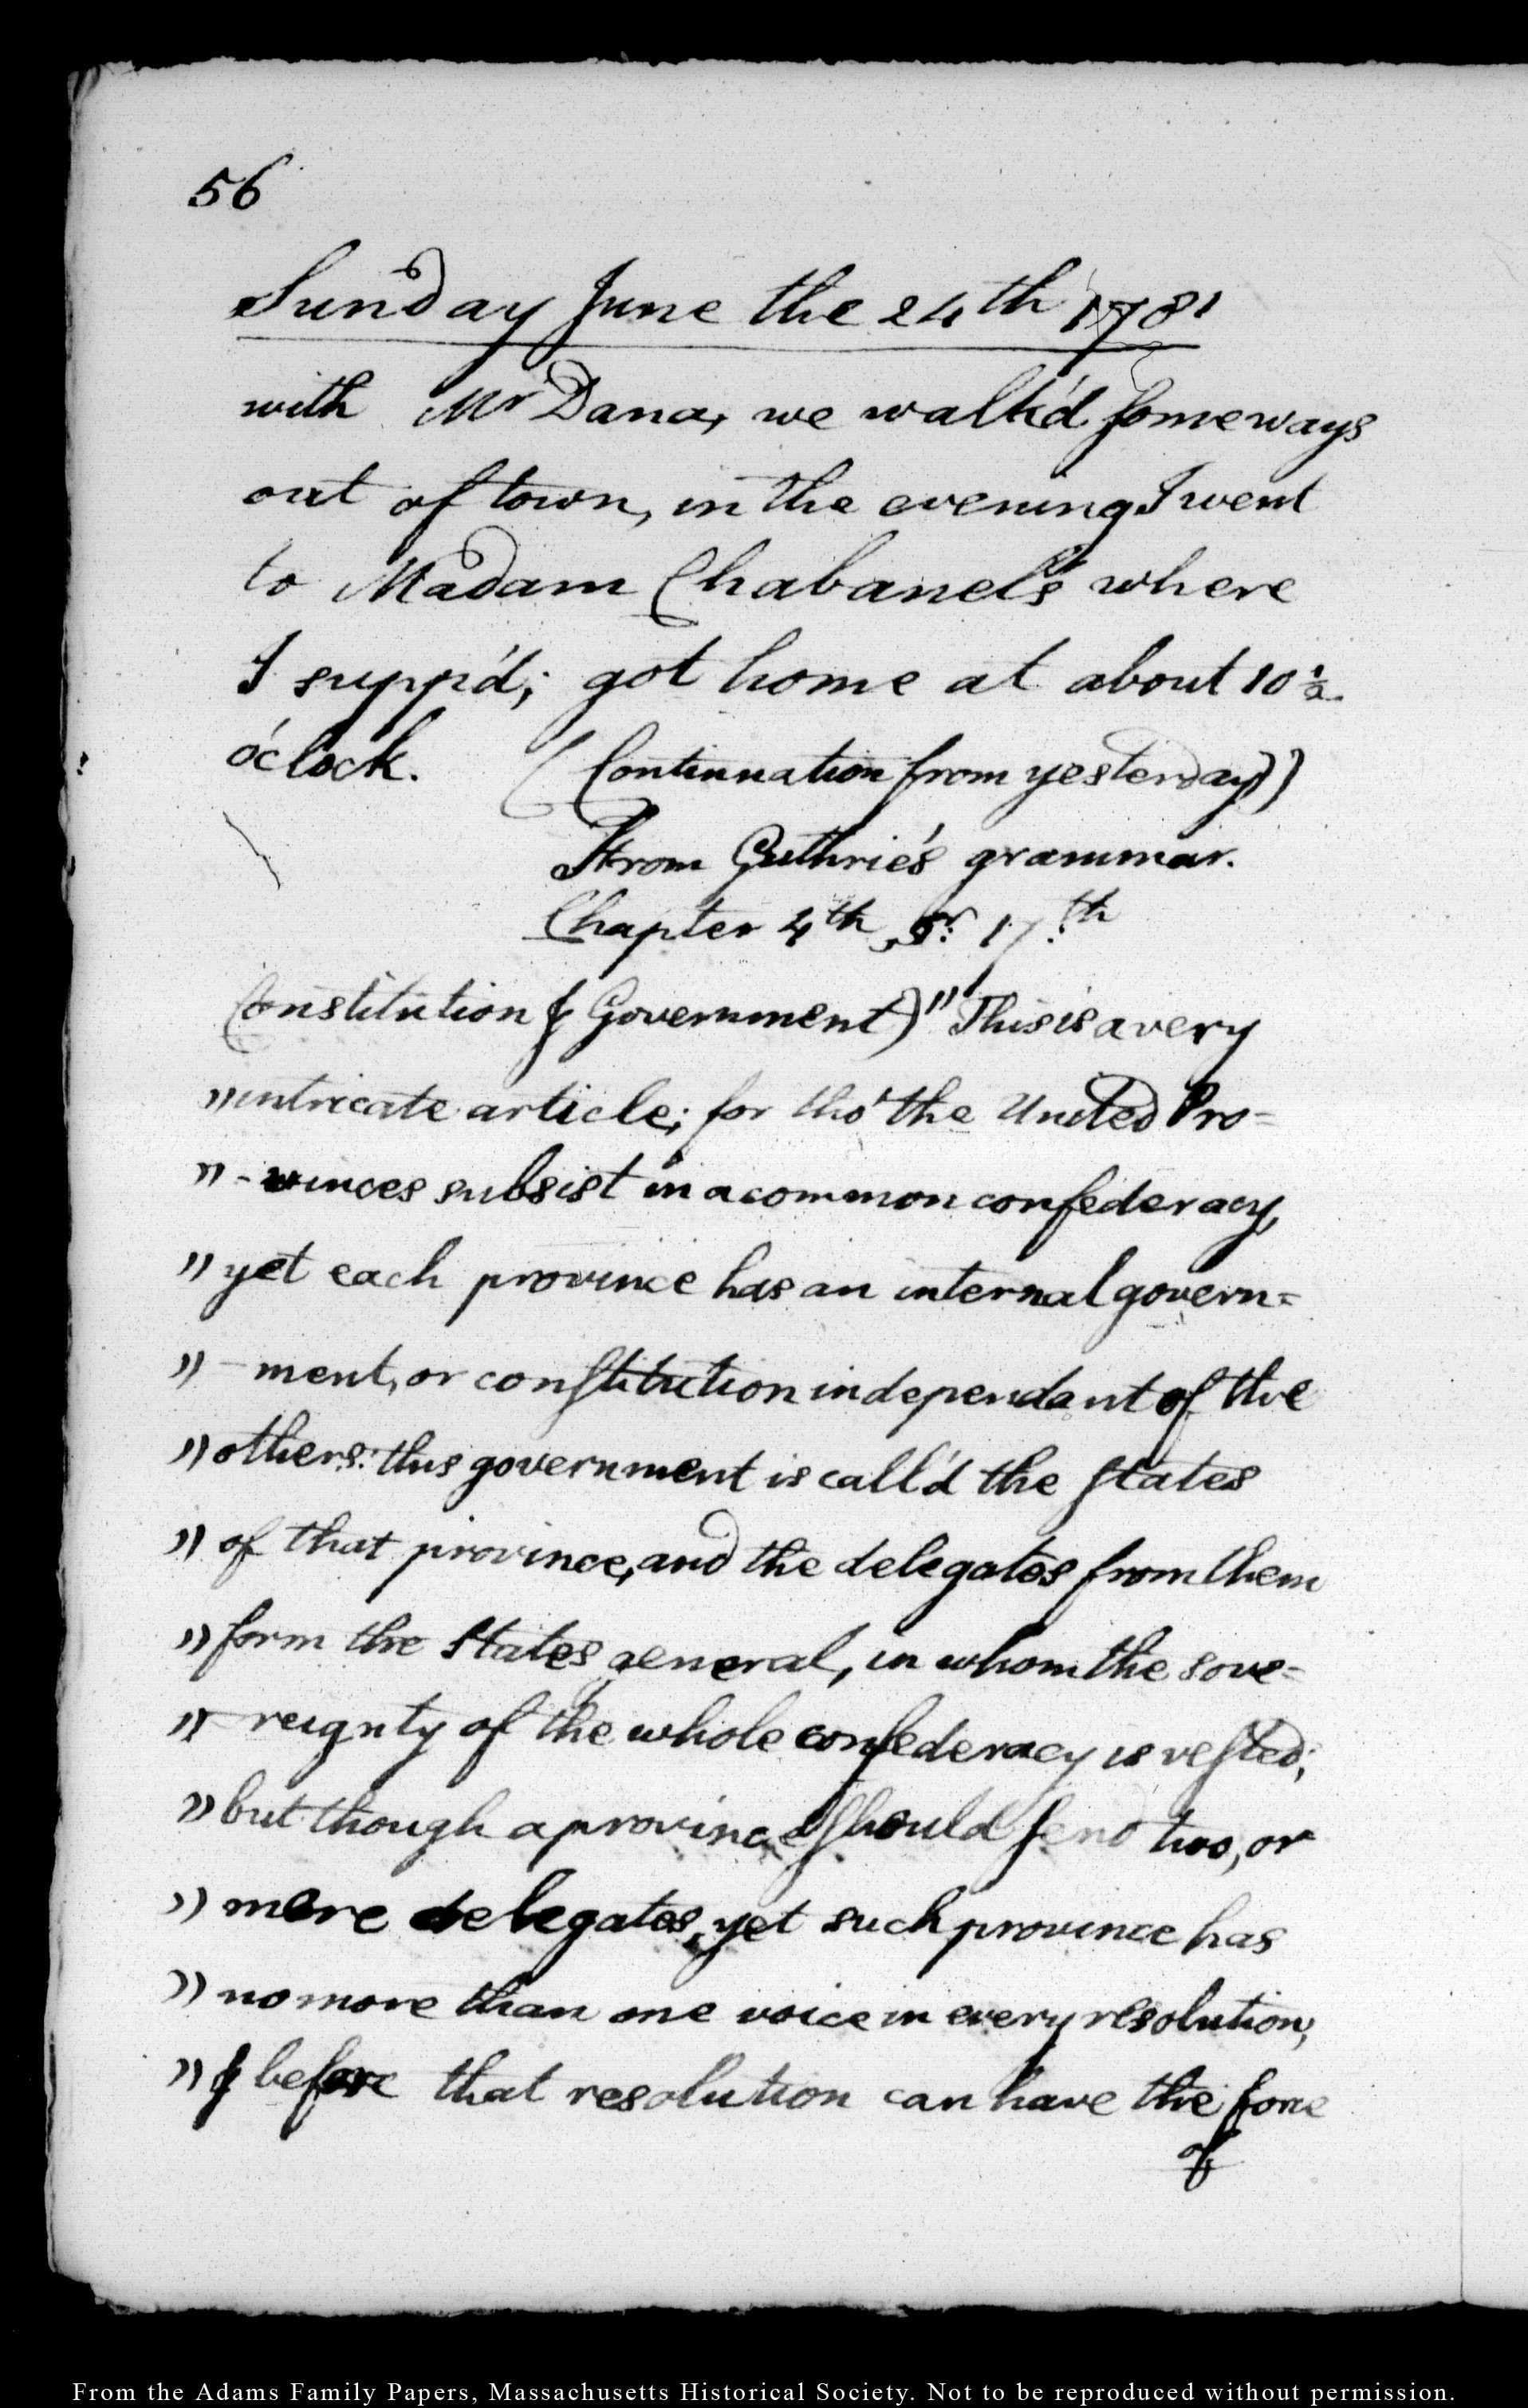 56
Sunday June the 24th 1781
with Mr Dana, we walk'd someways
out of town, in the evening I went
to Madam Chabanel's where
I supp'd; got home at about 10 1/2
o'clock. (Continuation from yesterday))
From Guthrie's grammar.
Chapter 4th, 17th
Constitution & Government) " This is a very
" intricate article; for tho' the United Pro=
" -vinces subsist in a common confederacy,
" yet each province has an internal govern=
" -ment, or constitution independant of the
" others: this government is call'd the States
" of that province, and the delegates from them
" form the States general, in whom the sove=
" -reignty of the whole confederacy is vested;
" but though a province should send two, or
" more delegates, yet such province has
" no more than one voice in every resolution,
" & before that resolution can have the force
of
From the Adams Family Papers, Massachusetts Historical Society. Not to be reproduced without permission.